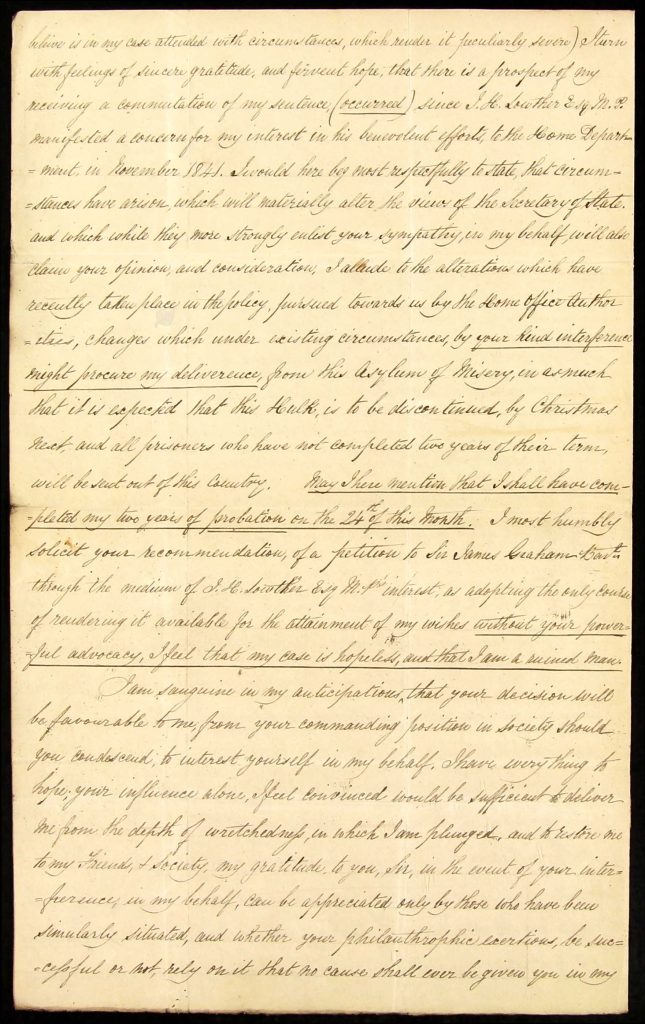 beleive is in my case attended with circumstances, which render it peculiarly severe) I turn
with feelings of sincere gratitude, and fervent hope, that there is a prospect of my
receiving a commutation of my sentence (occurred) since J. H. Lowther Esq M. P.
manifested a concern for my interest in his benevolent efforts, to the Home Depart-
-ment, in November 1841. I would here beg most respectfully to state, that circum-
-stances have arison, which will materially alter the views of the Secretary of State
and which while they more strongly enlist your sympathy, in my behalf will also
claim your opinion, and consideration, I allude to the alterations which have
recently taken place in the policy, pursued towards us by the Home Office Author
=ities, changes which under existing circumstances, by your kind interference
might procure my deliverence, from this Asylum of Misery, in as much
that it is expected that this Hulk, is to be discontinued, by Christmas
next, and all prisoners who have not completed two years of their term,
will be sent out of this Country. May I here mention that I shall have com-
-pleted my two years of probation on the 24th of this Month. I most humbly
solicit your recommendation, of a petition to Sir James Graham Bart
through the medium of J. H. Lowther Esq M. P's interest, as adopting the only course
of rendering it available for the attainment of my wishes without your power-
-ful advocacy, I feel that my case is hopeless, and that I am a ruined man.
I am sanguine in my anticipations, that your decision will
be favourable to me, from your commanding position in society should
you condescend, to interest yourself in my behalf. I have everything to
hope, your influence alone, I feel convinced would be sufficient to deliver
me from the depth of wretchedness, in which I am plunged, and to restore me
to my Friends, & society, my gratitude to you, Sir, in the event of your inter-
-ference, in my behalf, can be appreciated only by those who have been
simularly situated, and whether your philanthrophic exertions, be suc-
-cessful or not, rely on it that no cause shall ever be given you in my